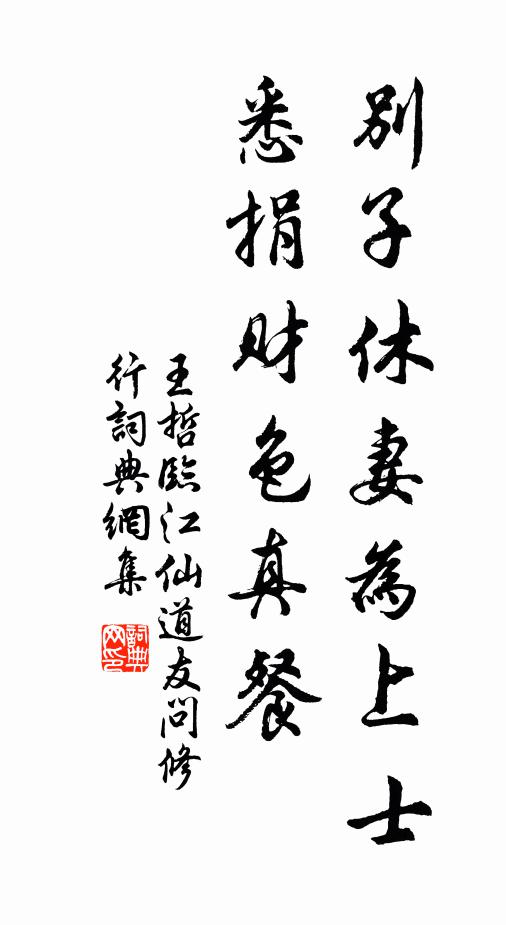 別子休妻為上士
悉捐財色真餐
王哲臨江仙道友問修
行詞典網集
詞典
网印